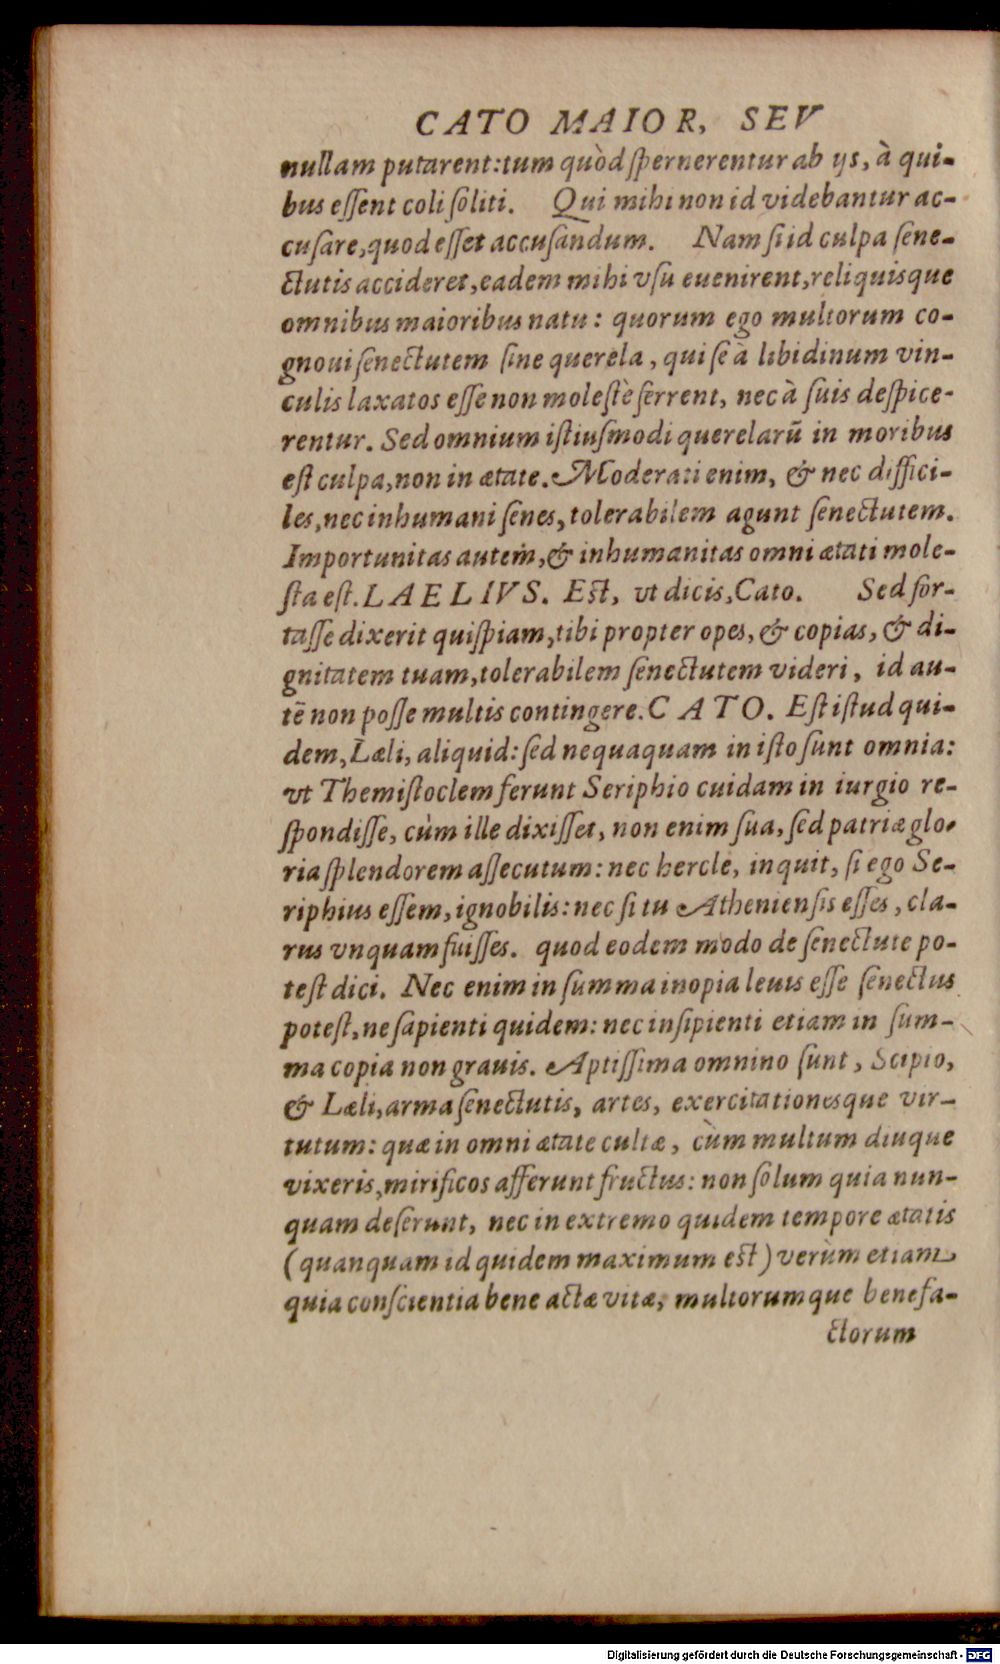 CATO MAIOR, SEV
nullam putarent: tum quòd ſpernerentur ab ijs, à qui-
bus eſſent coli ſoliti. Qui mihi non id videbantur ac-
cuſare, quod eſſet accuſandum. Nam ſi id culpa ſene-
ctutis accideret, eadem mihi vſu euenirent, reliquisque
omnibus maioribus natu: quorum ego multorum co-
gnoui ſenectutem ſine querela, qui ſe à libidinum vin-
culis laxatos eſſe non moleſtè ferrent, nec à ſuis deſpice-
rentur. Sed omnium iſtiuſmodi querelarū in moribus
eſt culpa, non in ætate. Moderati enim, & nec diffici-
les, nec inhumani ſenes, tolerabilem agunt ſenectutem.
Importunitas autem, & inhumanitas omni ætati mole-
ſta eſt. LAELIVS. Eſt, vt dicis, Cato. Sed for-
taſſe dixerit quiſpiam, tibi propter opes, & copias, & di-
gnitatem tuam, tolerabilem ſenectutem videri, id au-
tē non poſſe multis contingere. CATO. Eſt iſtud qui-
dem, Læli, aliquid: ſed nequaquam in iſto ſunt omnia:
vt Themiſtoclem ferunt Seriphio cuidam in iurgio re-
ſpondiſſe, cùm ille dixiſſet, non enim ſua, ſed patriæ glo-
ria ſplendorem aſſecutum: nec hercle, inquit, ſi ego Se-
riphius eſſem, ignobilis: nec ſi tu Athenienſis eſſes, cla-
rus vnquam fuiſſes. quod eodem modo de ſenectute po-
teſt dici. Nec enim in ſumma inopia leuis eſſe ſenectus
poteſt, ne ſapienti quidem: nec inſipienti etiam in ſum-
ma copia non grauis. Aptiſſima omnino ſunt, Scipio,
& Læli, arma ſenectutis, artes, exercitationesque vir-
tutum: quæ in omni ætate cultæ, cùm multum diuque
vixeris, mirificos afferunt fructus: non ſolum quia nun-
quam deſerunt, nec in extremo quidem tempore ætatis
(quanquam id quidem maximum eſt) verùm etiam
quia conſcientia bene actæ vitæ, multorumque benefa-
ctorum
Digitalisierung gefördert durch die Deutsche Forschungsgemeinschaft - DFG